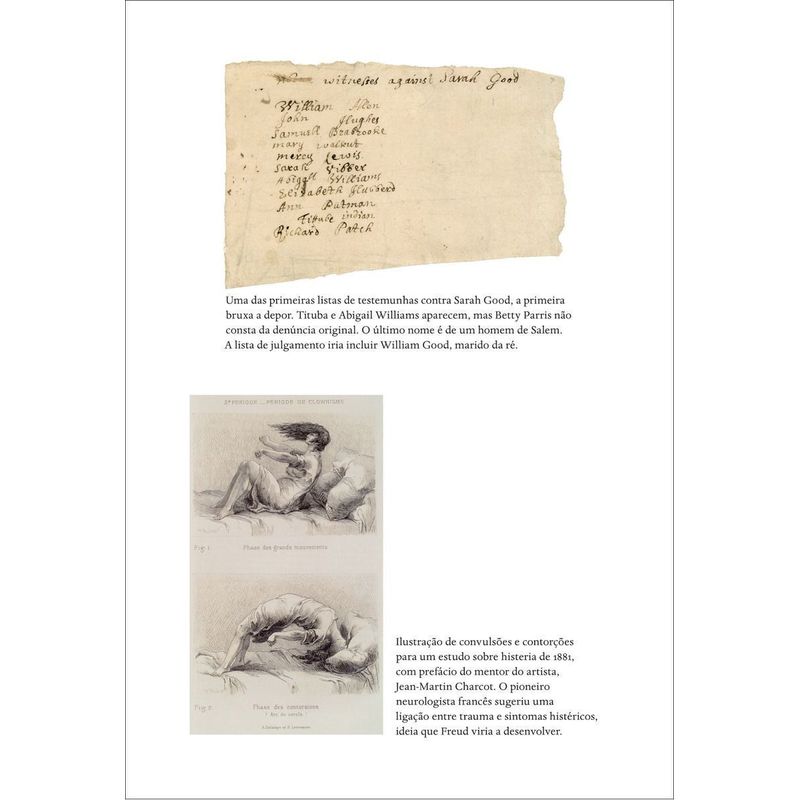 witnesses against Sarah Good
William Allen
John Hughes
Samuell Brabrooke
mary walcut
mercy Lewis
Sarah Vibber
Abigall Williams
Elizabeth Hubberd
Ann Putman
Tittube indian
Richard Patch
Uma das primeiras listas de testemunhas contra Sarah Good, a primeira
bruxa a depor. Tituba e Abigail Williams aparecem, mas Betty Parris não
consta da denúncia original. O último nome é de um homem de Salem.
A lista de julgamento iria incluir William Good, marido da ré.
2e PERIODE _ PERIODE DE CLOWNISME
Fig. 1. Phase des grands mouvements
Fig. 2. Phase des contorsions
( Arc de cercle )
Ilustração de convulsões e contorções
para um estudo sobre histeria de 1881,
com prefácio do mentor do artista,
Jean-Martin Charcot. O pioneiro
neurologista francês sugeriu uma
ligação entre trauma e sintomas histéricos,
ideia que Freud viria a desenvolver.